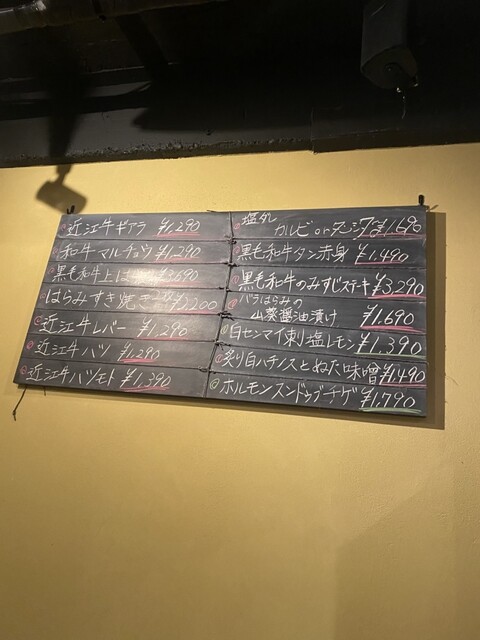 近江牛ギアラ ¥1,290
和牛マルチョウ ¥1,290
黒毛和牛上はらみ ¥3,690
はらみすき焼き ¥2,200
近江牛レバー ¥1,290
近江牛ハツ ¥1,290
近江牛ハツモト ¥1,390
塩ダレ
カルビ or ¥1,690
黒毛和牛タン赤身 ¥1,490
黒毛和牛のみすじステーキ ¥3,290
バラはらみの
山葵醤油漬け ¥1,690
白センマイ刺し塩レモン ¥1,390
炙り白ハチノスとぬた味噌 ¥1,490
ホルモンスンドゥブチゲ ¥1,790